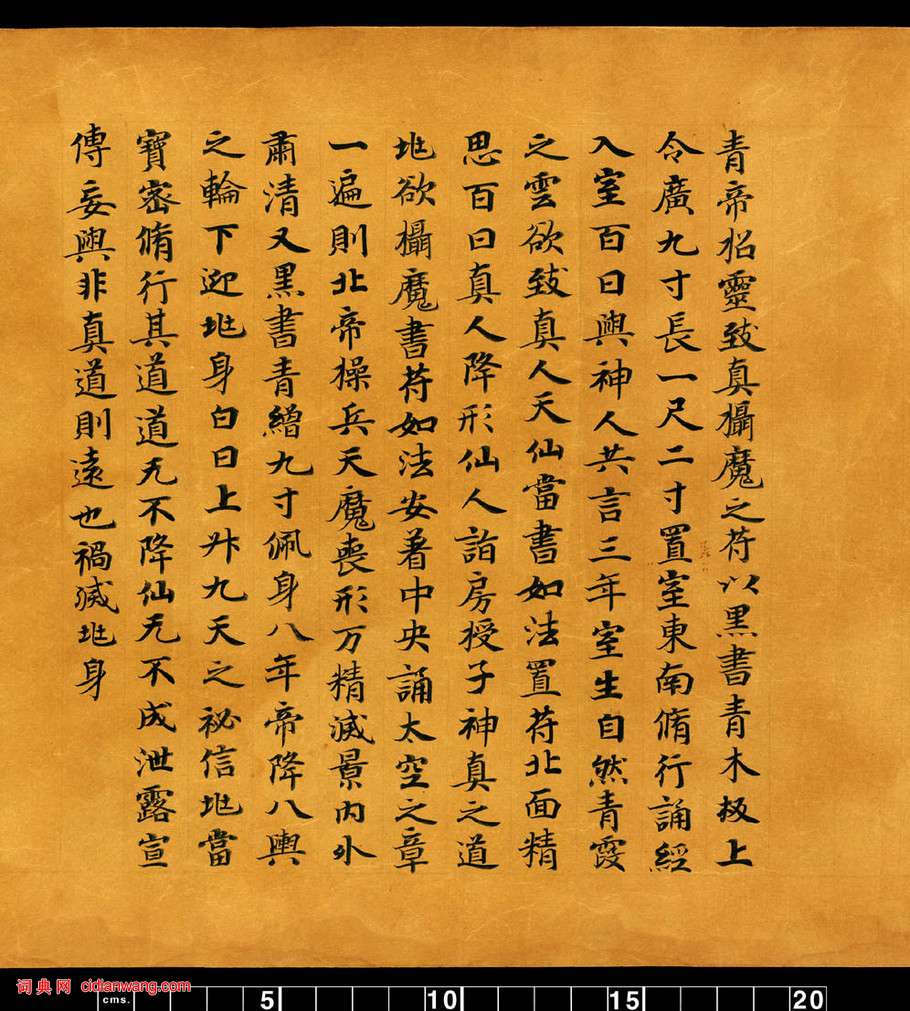 青帝招靈致真攝魔之苻以黑書青木板上
令廣九寸長一尺二寸置室東南脩行誦經
入室百日與神人共言三年室生自然青霞
之雲欲致真人天仙當書如法置苻北面精
思百日真人降形仙人詣房授子神真之道
兆欲攝魔書苻如法安著中央誦太空之章
一遍則北帝操兵天魔喪形万精滅景内外
肅清又黑書青繒九寸佩身八年帝降八輿
之輪下迎兆身白日上升九天之祕信兆當
寶密脩行其道道无不降仙无不成泄露宣
傳妄與非真道則遠也禍滅兆身
词典网 cidianwang.com
cms. 5 10 15 20